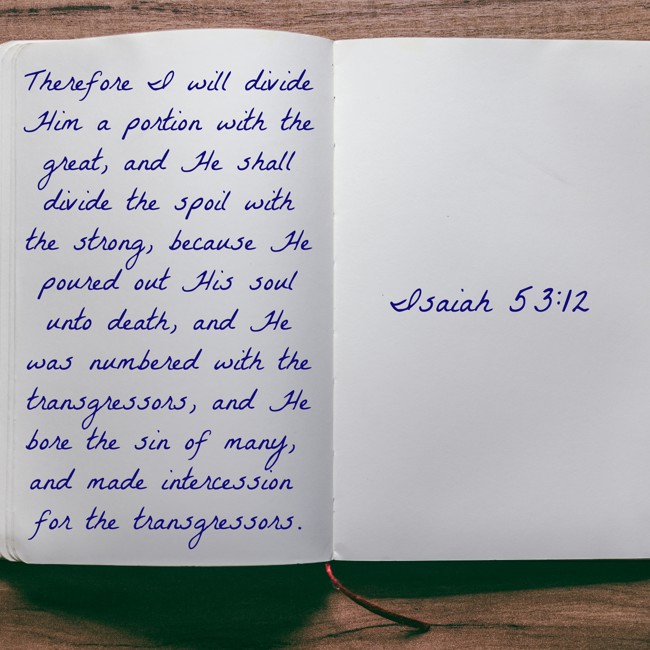 Therefore I will divide
Him a portion with the
great, and He shall
divide the spoil with
the strong, because He
poured out His soul
unto death, and He
was numbered with the
transgressors, and He
bore the sin of many,
and made intercession
for the transgressors.
Isaiah 53:12